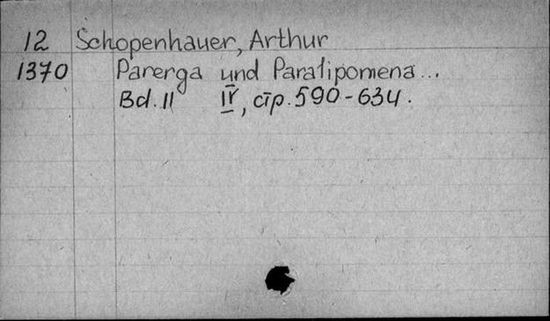 12 Schopenhauer, Arthur
1370 Parerga und Paralipomena...
Bd. II IV, стр. 590-634.